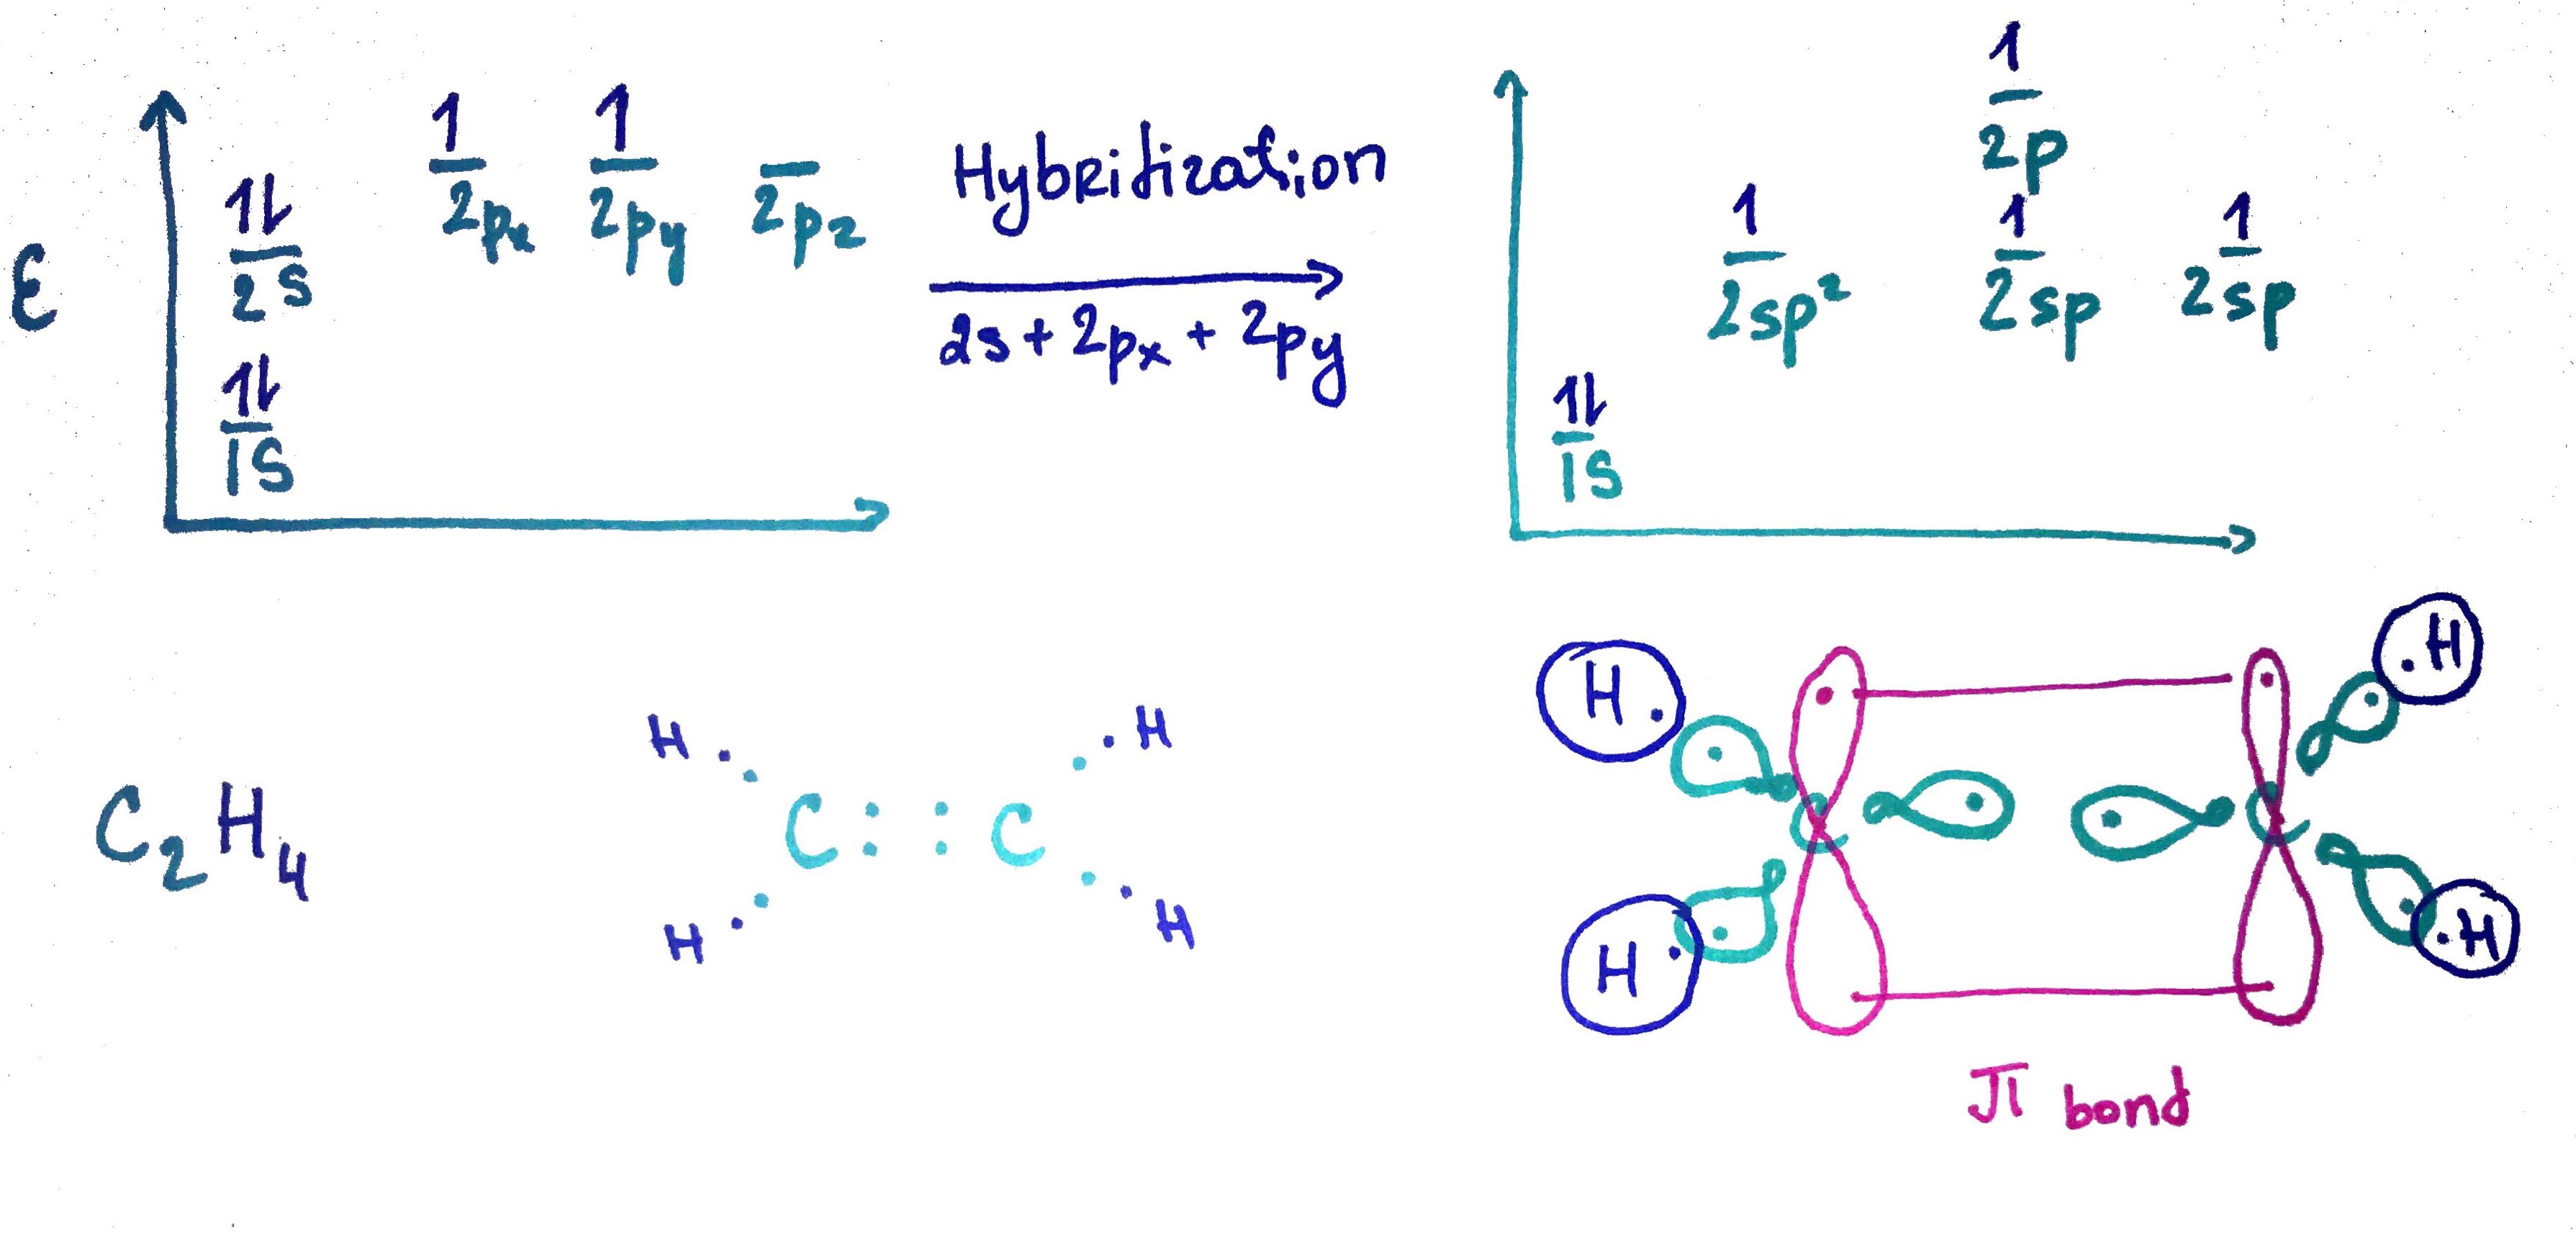 ε
1↿⇂ 2s
1 2px
1 2py
2pz
1↿⇂ 1s
Hybritization
2s + 2px + 2py
1 2p
1 2sp²
1 2sp
1 2sp
1↿⇂ 1s
C₂H₄
H H
C : : C
H H
H H
C C
H H
π bond